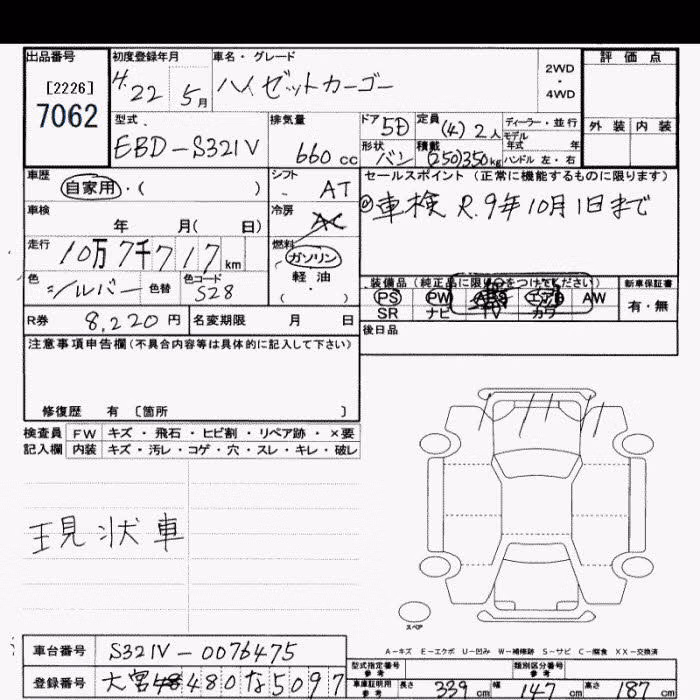 出品番号 初度登録年月 車名・グレード 評価点
[2226] H.22 5月 ハイゼットカーゴー 2WD・4WD
7062
型式 排気量 ドア 定員 ディーラー・並行 外装 内装
EBD-S321V 660cc 5D (4) 2人 モデル年式 年
形状 積載 ハンドル 左・右
バン (250)350kg
車歴 シフト セールスポイント (正常に機能するものに限ります)
自家用・( ) AT
車検 冷房 車検 R.9年10月1日まで
年 月( 日) AC
走行 燃料
10万7千717km ガソリン
軽・油
( )
色 色替 色コード 装備品(純正品に限り○をつけてください) 新車保証書
シルバー S28 PS PW ABS エアB AW 有・無
SR ナビ カワ
R券 8,220円 名変期限 月 日 後日品
注意事項申告欄(不具合内容等は具体的に記入して下さい)
修復歴 有 〔箇所 〕
検査員 FW キズ・飛石・ヒビ割・リペア跡・×要
記入欄 内装 キズ・汚レ・コゲ・穴・スレ・キレ・破レ
現状車
スペア
A-キズ E-エクボ U-凹み W-補修跡 S-サビ C-腐食 XX-交換済
車台番号 S321V-0076475 型式指定番号 参考 類別区分番号 参考
登録番号 大宮 480 な 5097 車庫証明用 参考 長さ 339cm 幅 147cm 高さ 187cm